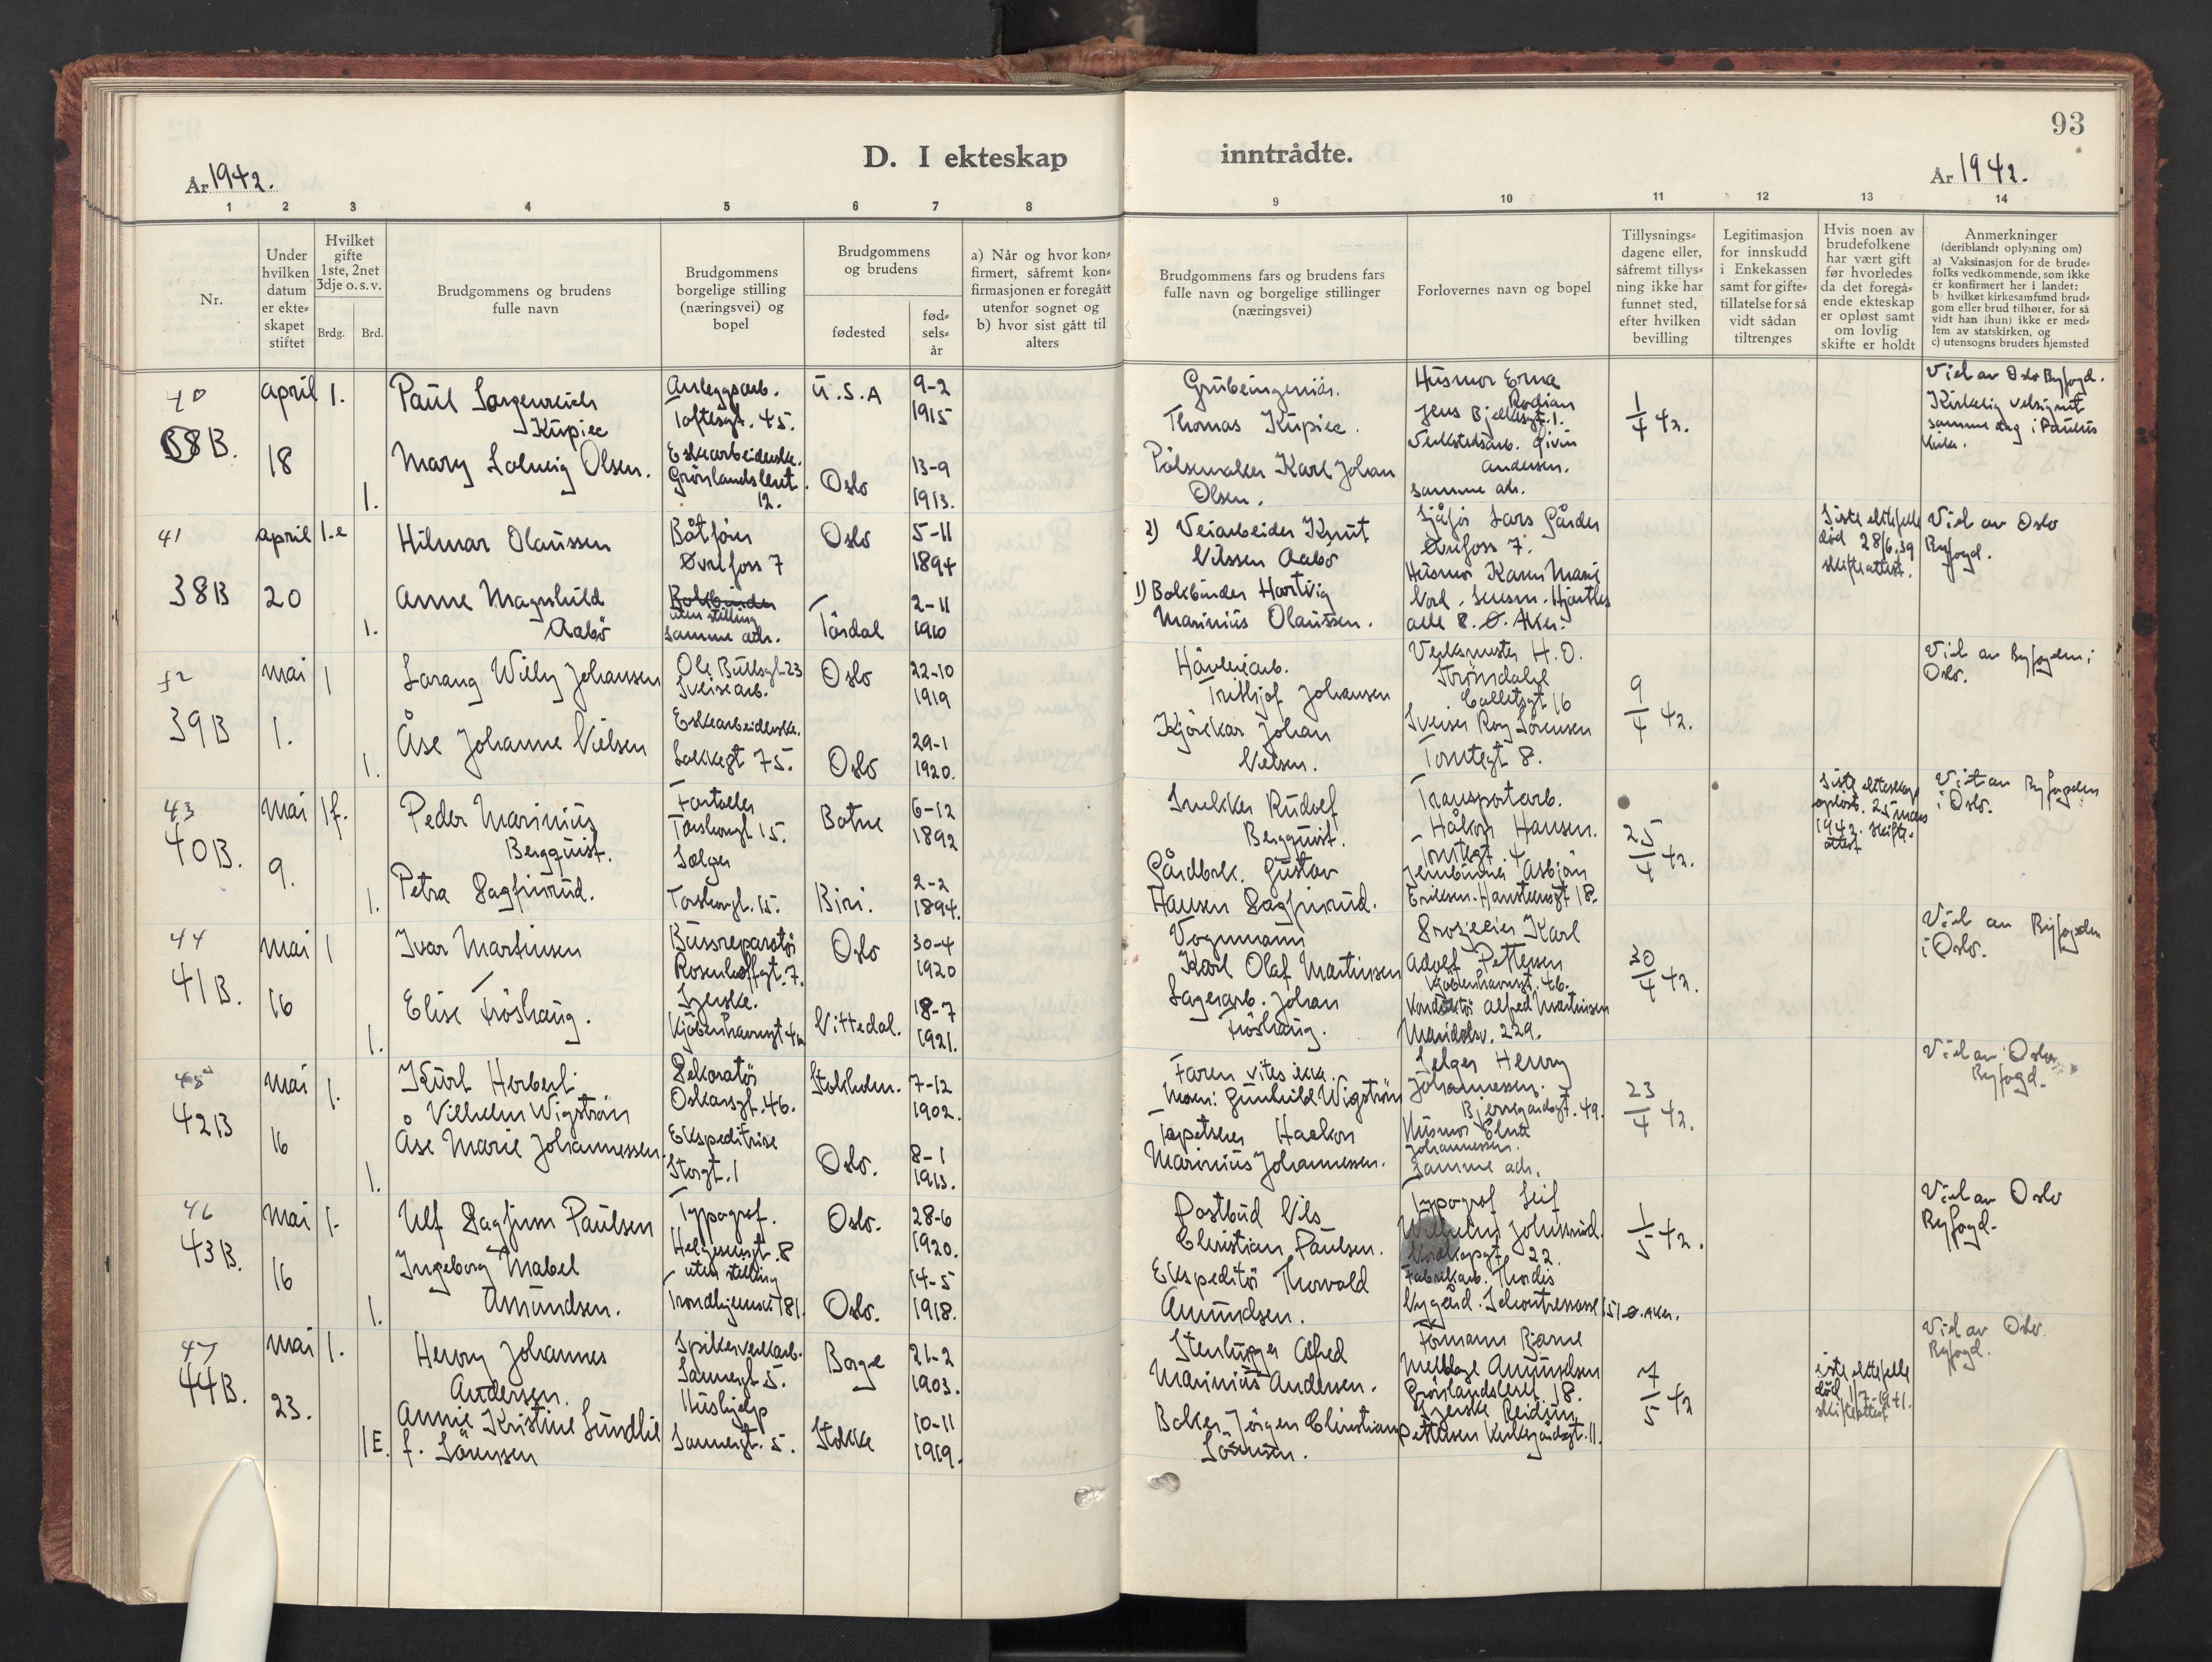 93
D. I ekteskap inntrådte.
År 1942.
År 1942.
1 2 3 4 5 6 7 8 9 10 11 12 13 14
Nr.
Under hvilken datum er ekte-skapet stiftet
Hvilket gifte 1ste, 2net 3dje o. s. v.
Brdg. Brd.
Brudgommens og brudens fulle navn
Brudgommens borgelige stilling (næringsvei) og bopel
Brudgommens og brudens
fødested
fød-sels-år
a) Når og hvor kon-firmert, såfremt kon-firmasjonen er foregått utenfor sognet og
b) hvor sist gått til alters
Brudgommens fars og brudens fars fulle navn og borgelige stillinger (næringsvei)
Forlovernes navn og bopel
Tillysnings-dagene eller, såfremt tillys-ning ikke har funnet sted, efter hvilken bevilling
Legitimasjon for innskudd i Enkekassen samt for gifte-tillatelse for så vidt sådan tiltrenges
Hvis noen av brudefolkene har vært gift før hvorledes da det foregå-ende ekteskap er opløst samt om lovlig skifte er holdt
Anmerkninger
(deriblandt oplysning om)
a) Vaksinasjon for de brude-folks vedkommende, som ikke er konfirmert her i landet:
b hvilket kirkesamfund brud-gom eller brud tilhører, for så vidt han (hun) ikke er med-lem av statskirken, og
c) utensogns bruders hjemsted
40
38B.
april 18
1.
Paul
Kupiec
Anleggsarb.
Toftesgt. 45.
U.S.A
9-2
1915
Grubeingeniør.
Thomas Kupiec.
Husmor Erna
Jens Bjelkesgt. 1.
1/4 42.
Viet av Oslo Byfogd.
Kirkelig velsignet
samme dag i Paulus
kirke.
1.
Mary Solveig Olsen.
Eskearbeiderske.
Grønlandsleret
12.
Oslo
13-9
1913.
Pølsemaker Karl Johan
Olsen.
Verkstedsarb.
Andersen.
samme adr.
41
38B
april 20
1.e
Hilmar Olaussen
Båtfører
Øvrefoss 7
Oslo
5-11
1894
2) Veiarbeider Knut
Nilssen Aabø
Sjåfør Lars Gårder
Øvrefoss 7.
Siste ektefelle
død 28/6.39
skifteattest.
Viet av Oslo
Byfogd.
1.
Anne Magnhild
Aabø
Bokbinder
uten stilling
samme adr.
Tørdal
2-11
1910
1) Bokbinder Hartvig
Marinius Olaussen.
Husmor Karen Marie
alle 8. Ø. Aker.
42
39B
mai 1.
1
Sarang Willy Johansen
Ole Bullsgt. 23
Sveisearb.
Oslo
22-10
1919
Høvleriarb.
Frithjof Johansen
Verksmester H. O.
Strømdahl
Collettsgt 16
9/4 42.
Viet av Byfogden i
Oslo.
1.
Åse Johanne Nielsen
Eskearbeiderske.
Søkkegt 75.
Oslo
29-1
1920.
Kjørekar Johan
Nielsen.
Sveiser Roy Sørensen
Torstegt 8.
43
40B.
mai 9.
1 f.
Peder Marinius
Bergquist.
Fortøller
Torshovgt. 15.
Botne
6-12
1892
Snekker Rudolf
Bergquist.
Transportarb.
Håkon Hansen.
Torstegt. 4
25/4 42.
Siste ekteskap
opløst. 25 mars
1942. skifte-
attest
Viet av Byfogden
i Oslo.
1.
Petra Dagfinrud.
Selger
Torshovgt. 15.
Biri.
2-2
1894.
Gårdbrk. Gustav
Hansen Dagfinrud.
Jernbinder Asbjørn
Eriksen. Hansteensgt 18.
44
41B.
mai 16
1
Ivar Martinsen
Bussreparatør
Rosenhoffgt. 7.
Oslo
30-4
1920
Vognmann
Karl Olaf Martinsen
Grosjerer Karl
Adolf Pettersen
Kjøbenhavnsgt. 46.
20/4 42.
Viet av Byfogden
i Oslo.
1.
Elise Frøshaug.
Syerske.
Kjøbenhavnsgt 4
Nittedal.
18-7
1921.
Lagerarb. Johan
Frøshaug.
Konduktør Alfred Martinsen
Maridalsv. 229.
45
42B
mai 16
1.
Kurt Herbert
Vilhelm Wigstrøm
Dekoratør
Oskarsgt. 46.
Stokholm.
7-12
1902.
Faren vites ikke.
Moren: Gunhild Wigstrøm
Selger Henry
Johannessen.
Bjerregaardsgt. 49.
23/4 42.
Viet av Oslo
Byfogd.
1.
Åse Marie Johannessen.
Ekspeditrise
Storgt. 1
Oslo.
8-1
1913.
Tapetserer Haakon
Marinius Johannessen.
Husmor
Johannessen.
Samme adr.
46
43B.
mai 16
1.
Ulf Dagfinn Paulsen
Typograf.
Helgesensgt. 8
Oslo.
28-6
1920.
Postbud Nils
Christian Paulsen.
Typograf Leif
Wilhelm Johnsrud.
Nordkapgt. 22.
1/5 42.
Viet av Oslo
Byfogd.
1.
Ingeborg Mabel
Amundsen.
uten stilling
Trondhjemsvei 181.
Oslo.
14-5
1918.
Ekspeditør Thorvald
Amundsen.
Fabrikarb. Thordis
Nygård. 151 Ø. Aker.
47
44B.
mai 23.
1.
Henry Johannes
Andersen.
Spikerverkarb.
Sannergt. 5.
Borge
21-2
1903.
Stenhugger Alfred
Marinius Andersen.
Formann Bjarne
Amundsen
Grønlandsleret 18.
7/5 42
siste ektefelle
død 1/7-1941.
skifteattest
Viet av Oslo
Byfogd.
1E.
Annie Kristine Sundlie
f. Sørensen
Hushjelp
Sannergt. 5.
Stokke
10-11
1919.
Baker Jørgen Christian
Sørensen.
Syerske Reidun
Pettersen Kirkegårdsgt. 11.